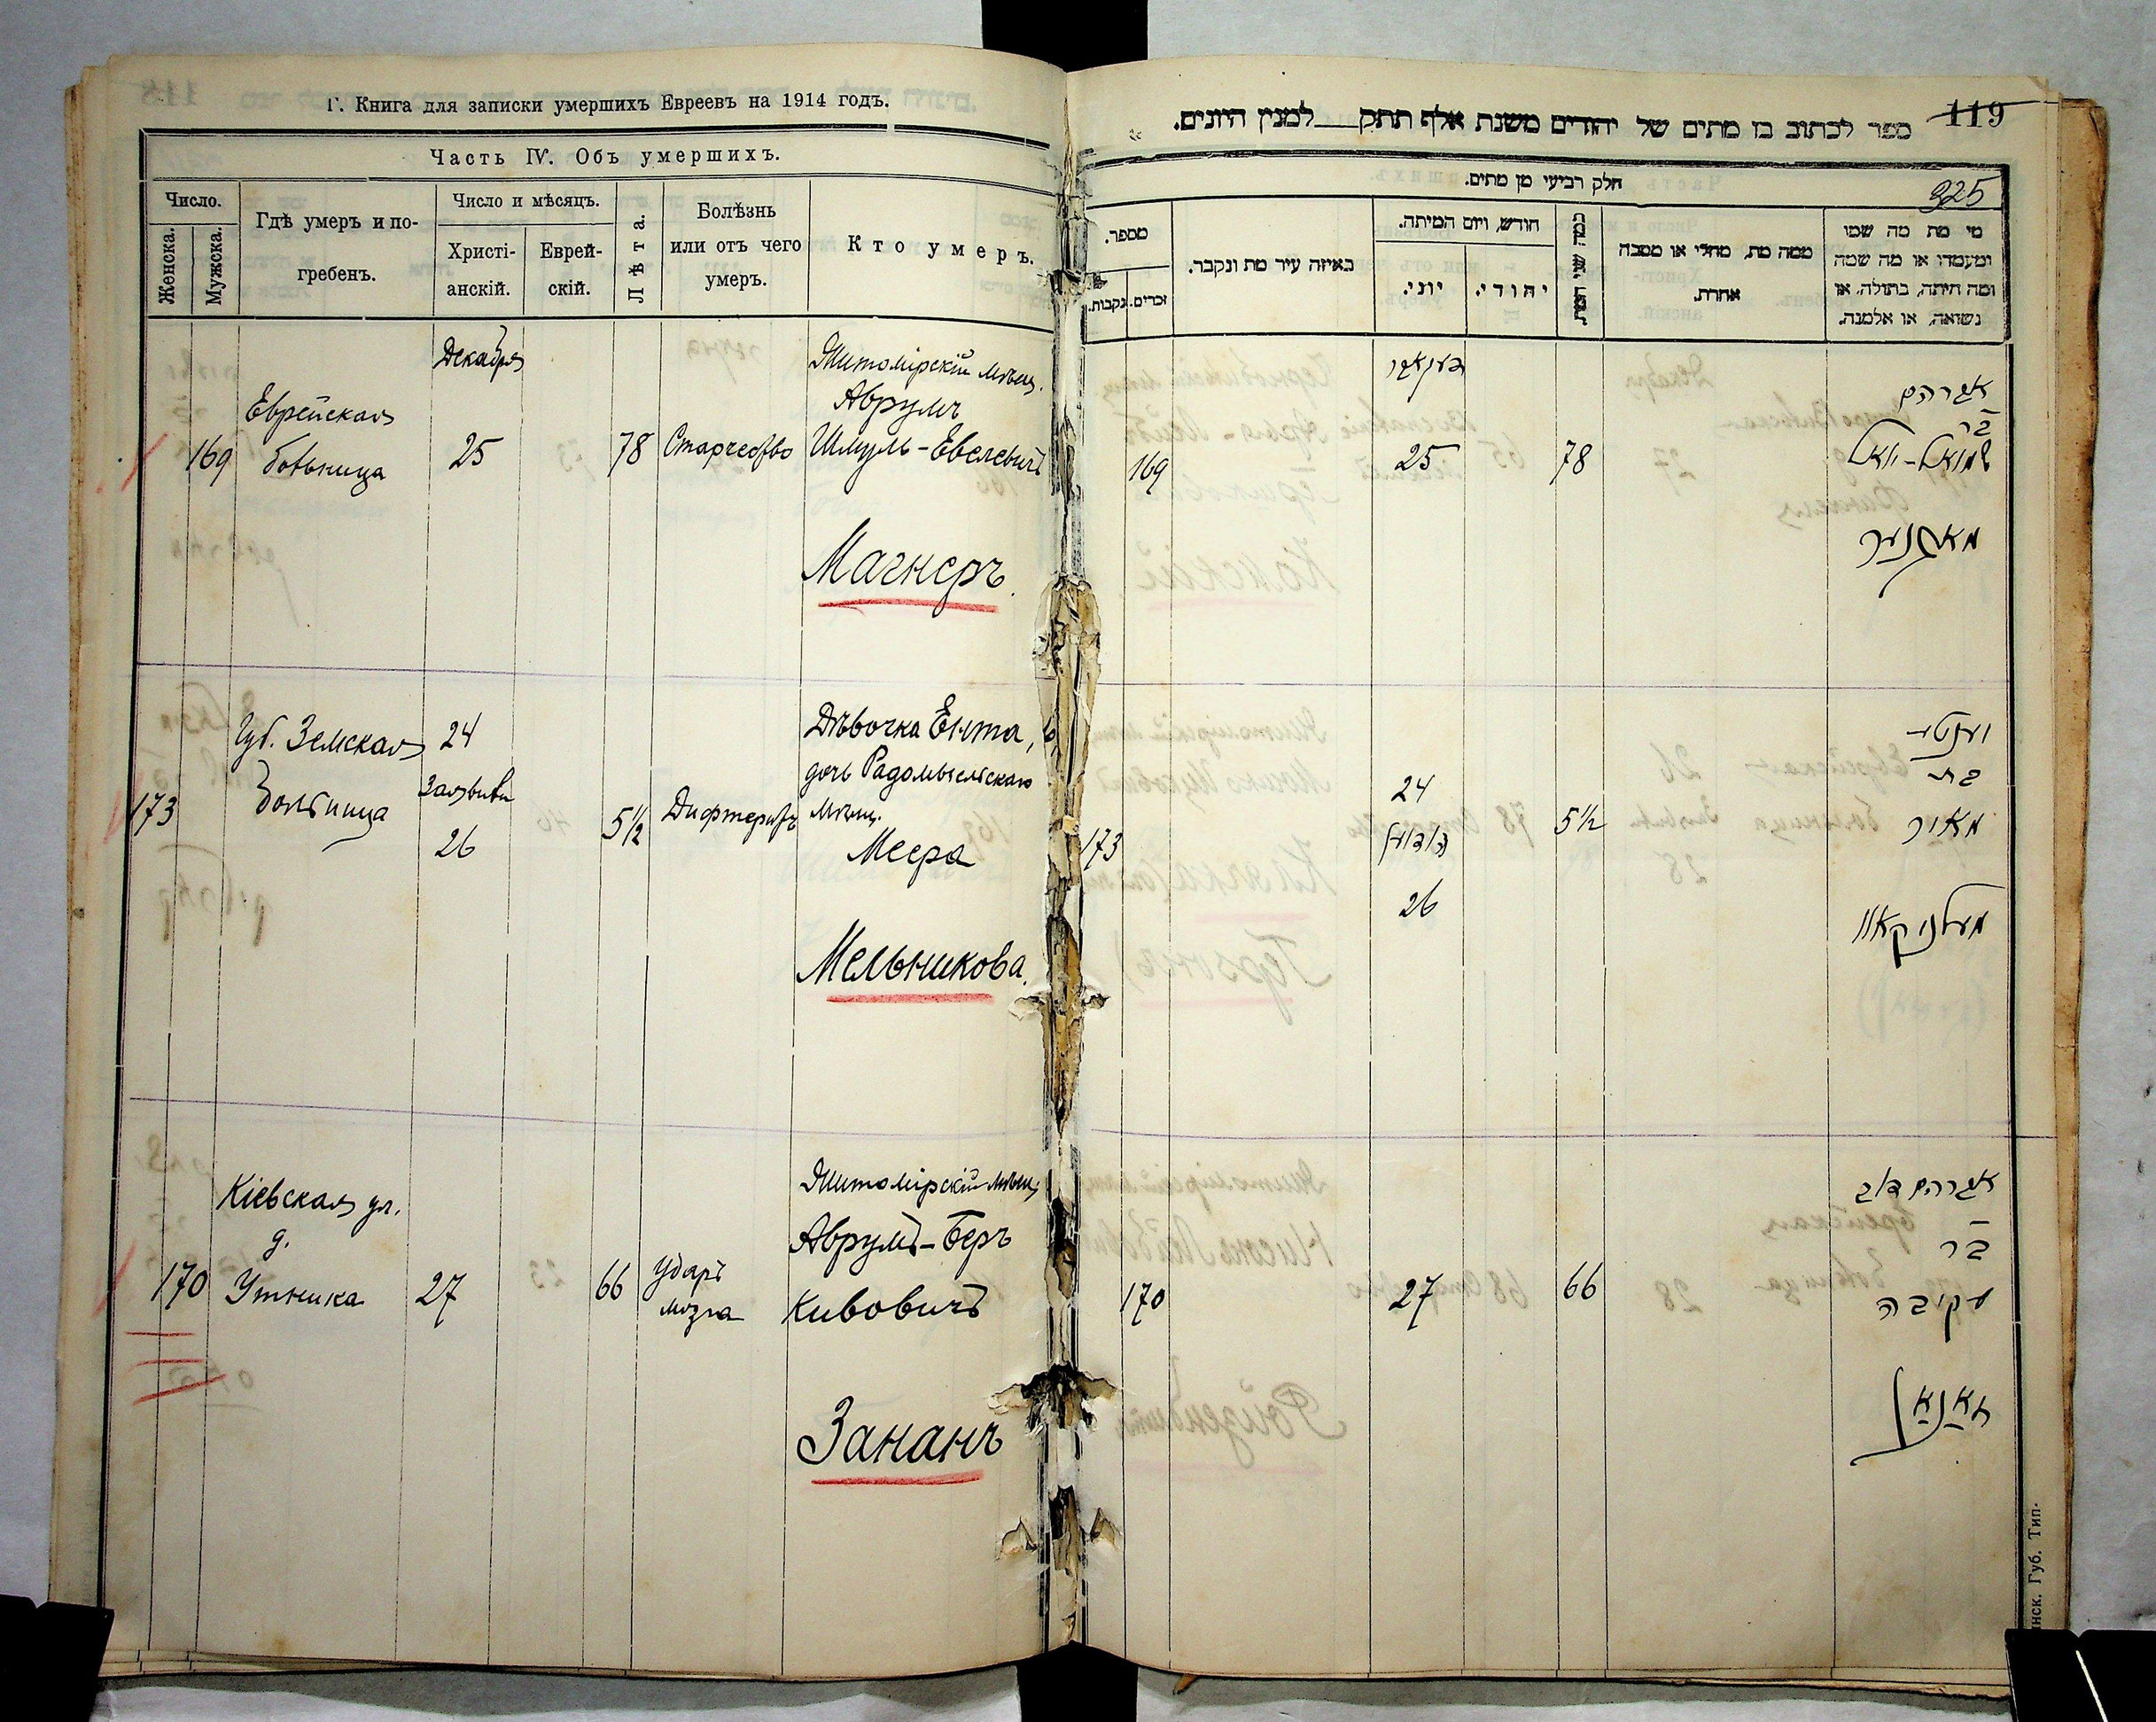 Г. Книга для записки умершихъ Евреевъ на 1914 годъ.
Часть IV. Объ умершихъ.
Число.
Женска.
Мужска.
Гдѣ умеръ и по-
гребенъ.
Число и мѣсяцъ.
Христі-
анскій.
Еврей-
скій.
Лѣта.
Болѣзнь
или отъ чего
умеръ.
Кто умеръ.
Декабря
169
Еврейская
больница
25
78
Старчество
Житомірскій мѣщ.
Аврумъ
Шмуль-Евелевичъ
Магнеръ.
173
Губ. Земская
больница
24
Заявили
26
5½
Дифтеритъ
Дѣвочка Ента,
дочь Радомысльскаго
мѣщ.
Меера
Мельникова.
170
Кіевская ул.
д.
Утника
27
66
Ударъ
мозга
Житомірскій мѣщ.
Аврумъ-Беръ
Кивовичъ
Зананъ
119
ספר לכתוב בו מתים של יהודים משנת אלף תתק למנין היונים.
325
חלק רביעי מן מתים.
מספר.
זכרים.
נקבות.
באיזה עיר מת ונקבר.
חודש, ויום המיתה.
יוני.
יהודי.
ממה מת, מחלי או מסבה
אחרת.
מי מת מה שמו
ומעמדו או מה שמה
ומה היתה, בתולה, או
נשואה, או אלמנה.
169
דעקאבר
25
78
אברהם
בר
שמואל-יואל
מאגנער
173
24
הודיעו
26
5½
יענטע
בת
מאיר
מעלניקאוו
170
27
66
אברהם דוב
בר
עקיבה
זאנאן
нск. Губ. Тип.